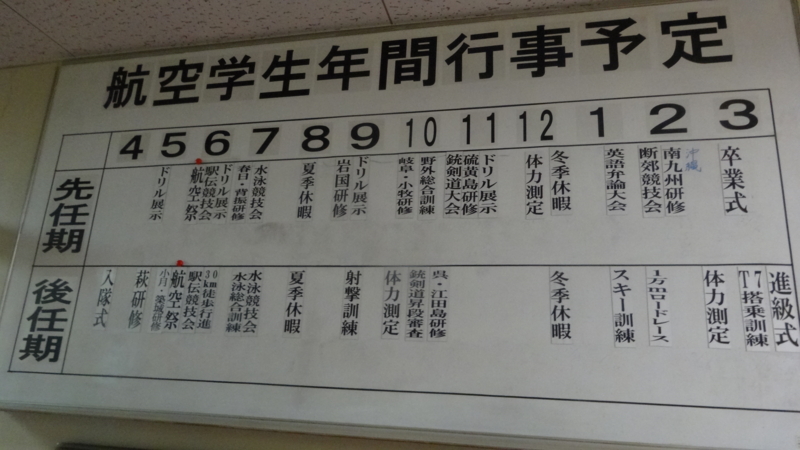 航空学生年間行事予定
4 5 6 7 8 9 10 11 12 1 2 3
先任期
ドリル展示
航空祭
駅伝競技会
ドリル展示
春日・背振研修
水泳競技会
夏季休暇
岩国研修
ドリル展示
岐阜・小牧研修
野外総合訓練
銃剣道大会
硫黄島研修
ドリル展示
体力測定
冬季休暇
英語弁論大会
断郊競技会
南九州研修
沖縄
卒業式
後任期
入隊式
萩研修
小月・築城研修
航空祭
駅伝競技会
30km徒歩行進
水泳総合訓練
水泳競技会
夏季休暇
射撃訓練
体力測定
銃剣道昇段審査
呉・江田島研修
冬季休暇
スキー訓練
1万mロードレース
体力測定
T7搭乗訓練
進級式